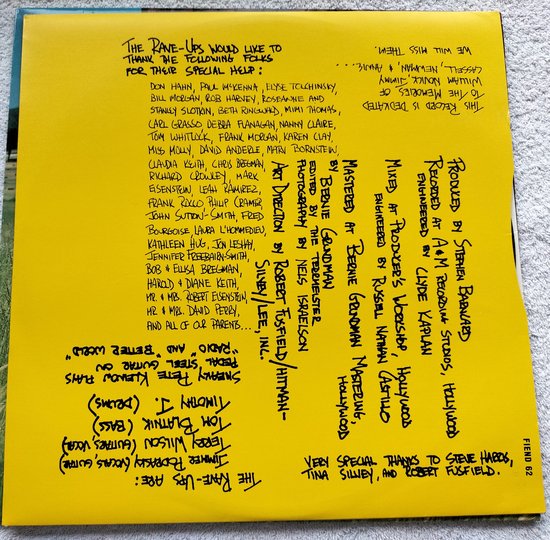 THE RAVE-UPS WOULD LIKE TO
THANK THE FOLLOWING FOLKS
FOR THEIR SPECIAL HELP:
DON HAHN, PAUL MCKENNA, ELYSE TOLCHINSKY,
BILL MORGAN, ROB HARVEY, ROSEANNE AND
STANLEY SLOTKIN, BETH RINGWALD, MIMI THOMAS,
CARL GRASSO, DEBRA FLANAGAN, NANNY CLAIRE,
TOM WHITLOCK, FRANK MORGAN, KAREN CLAY,
MISS MOLLY, DAVID ANDERLE, MATTY BORNSTEIN,
CLAUDIA KEITH, CHRIS BREGMAN
RICHARD CROWLEY, MARK
EISENSTEIN, LEAH RAMIREZ,
FRANK ROCCO, PHILIP CRAMER,
JOHN SUTTON-SMITH, FRED
BOURGOISE, LAURA L'HOMMEDIEU,
KATHLEEN HUG, JON LESHAY,
JENNIFER FREEBAIRN-SMITH,
BOB & ELLISA BREGMAN,
HAROLD & DIANE KEITH,
MR. & MRS. ROBERT EISENSTEIN,
MR. & MRS. DAVID PERRY,
AND ALL OF OUR PARENTS...
THIS RECORD IS DEDICATED
TO THE MEMORIES OF
WILLIAM NOVICK, JIMMY
CASSELL, NEWMAN, & ANNIE....
WE WILL MISS THEM.
PRODUCED BY STEPHEN BARNCARD
RECORDED AT A&M RECORDING STUDIOS, HOLLYWOOD
ENGINEERED BY CLYDE KAPLAN
MIXED AT PRODUCER'S WORKSHOP, HOLLYWOOD
ENGINEERED BY RUSSELL NATHAN CASTILLO
MASTERED AT BERNIE GRUNDMAN MASTERING,
HOLLYWOOD
BY BERNIE GRUNDMAN
EDITED BY THE TERRMEISTER
PHOTOGRAPHY BY NELS ISRAELSON
ART DIRECTION BY ROBERT FUSFIELD/HITMAN-
SILVEY/LEE, INC.
THE RAVE-UPS ARE:
JIMMER PODRASKY (VOCALS, GUITAR)
TERRY WILSON (GUITARS, VOCAL)
TOM BLATNIK (BASS)
TIMOTHY J. (DRUMS)
SNEAKY PETE KLEINOW PLAYS
PEDAL STEEL GUITAR ON
"RADIO" AND "BETTER WORLD"
VERY SPECIAL THANKS TO STEVE HABBS,
TINA SILVEY, AND ROBERT FUSFIELD.
FIEND 62